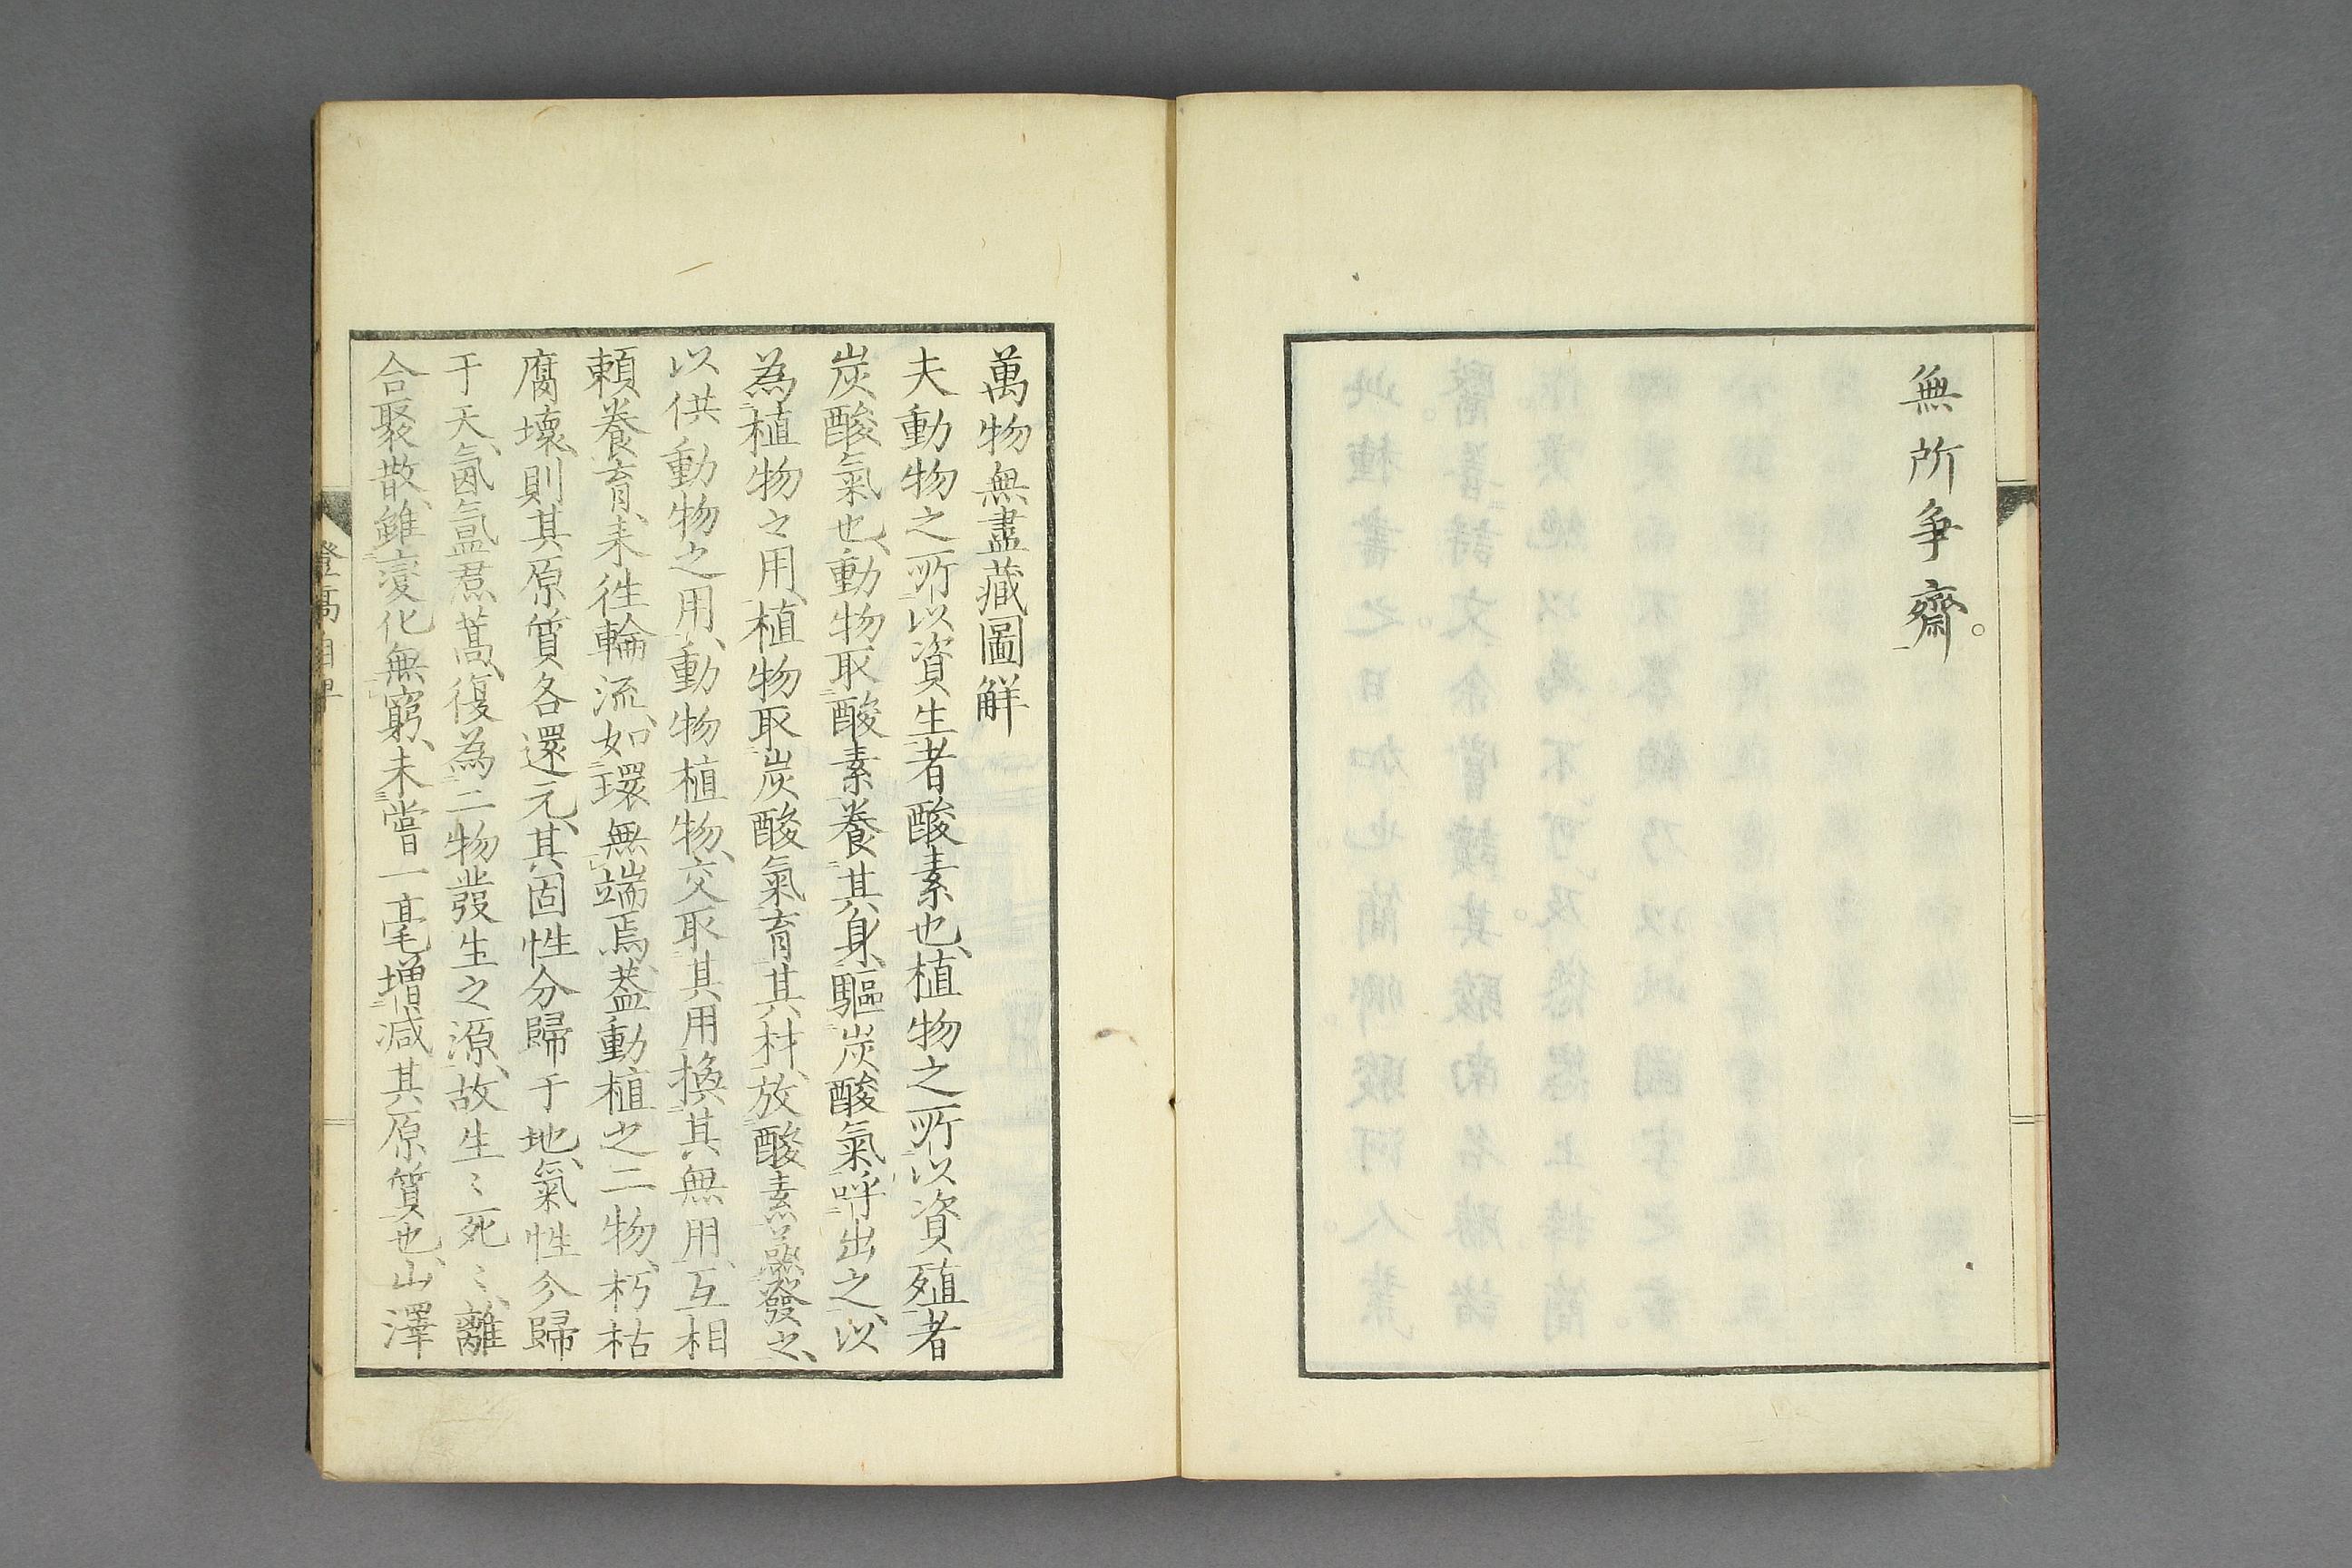 無所争齋。
萬物無盡藏圖解
夫動物之所以資生者酸素也、植物之所以資殖者
炭酸氣也、動物取酸素養其身、驅炭酸氣呼出之、以
為植物之用、植物取炭酸氣育其材、放酸素蒸發之、
以供動物之用、動物植物、交取其用換其無用、互相
頼養育、来徃輪流、如環無端焉、蓋動植之二物、朽枯
腐壞、則其原質各還元、其固性分歸于地、氣性分歸
于天、氤氳焄蒿、復為二物發生之源、故生〻死〻、離
合聚散、雖變化無窮、未嘗一毫増减其原質也、山澤
登高自卑